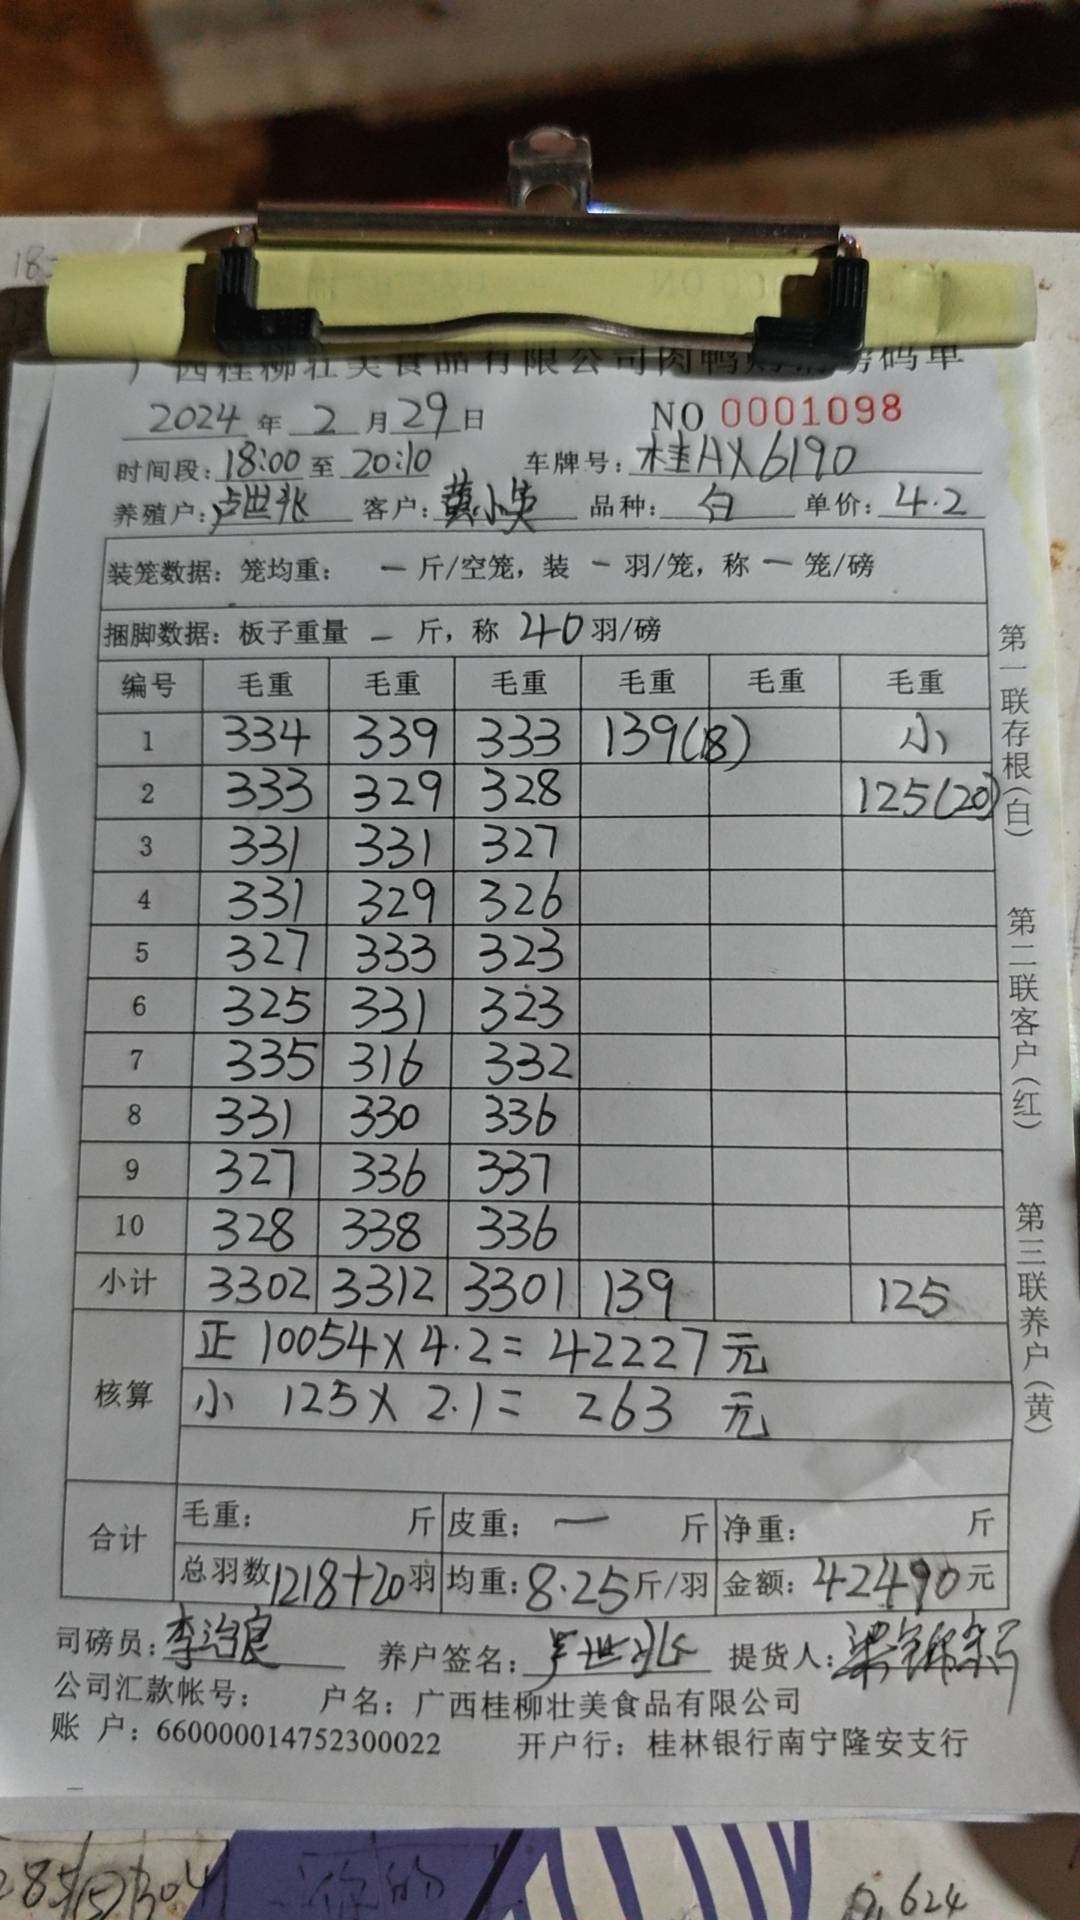 西桂柳壮美食品有限公司肉鸭购销磅码单
2024 年 2 月 29 日 NO 0001098
时间段: 18:00 至 20:10 车牌号: 桂AX6190
养殖户: 卢世兆 客户: 黄小英 品种: 白 单价: 4.2
装笼数据: 笼均重: 一 斤/空笼, 装 一 羽/笼, 称 一 笼/磅
捆脚数据: 板子重量 一 斤, 称 40 羽/磅
编号 毛重 毛重 毛重 毛重 毛重 毛重
1 334 339 333 139(18) 小
2 333 329 328 125(20)
3 331 331 327
4 331 329 326
5 327 333 323
6 325 331 323
7 335 316 332
8 331 330 336
9 327 336 337
10 328 338 336
小计 3302 3312 3301 139 125
核算
正 10054×4.2= 42227 元
小 125×2.1= 263 元
合计
毛重: 斤 皮重: 一 斤 净重: 斤
总羽数 1218+20 羽 均重: 8.25 斤/羽 金额: 42490 元
司磅员: 李治良 养户签名: 卢世兆 提货人:
公司汇款帐号: 户名: 广西桂柳壮美食品有限公司
账 户: 660000014752300022 开户行: 桂林银行南宁隆安支行
第一联存根(白)
第二联客户(红)
第三联养户(黄)